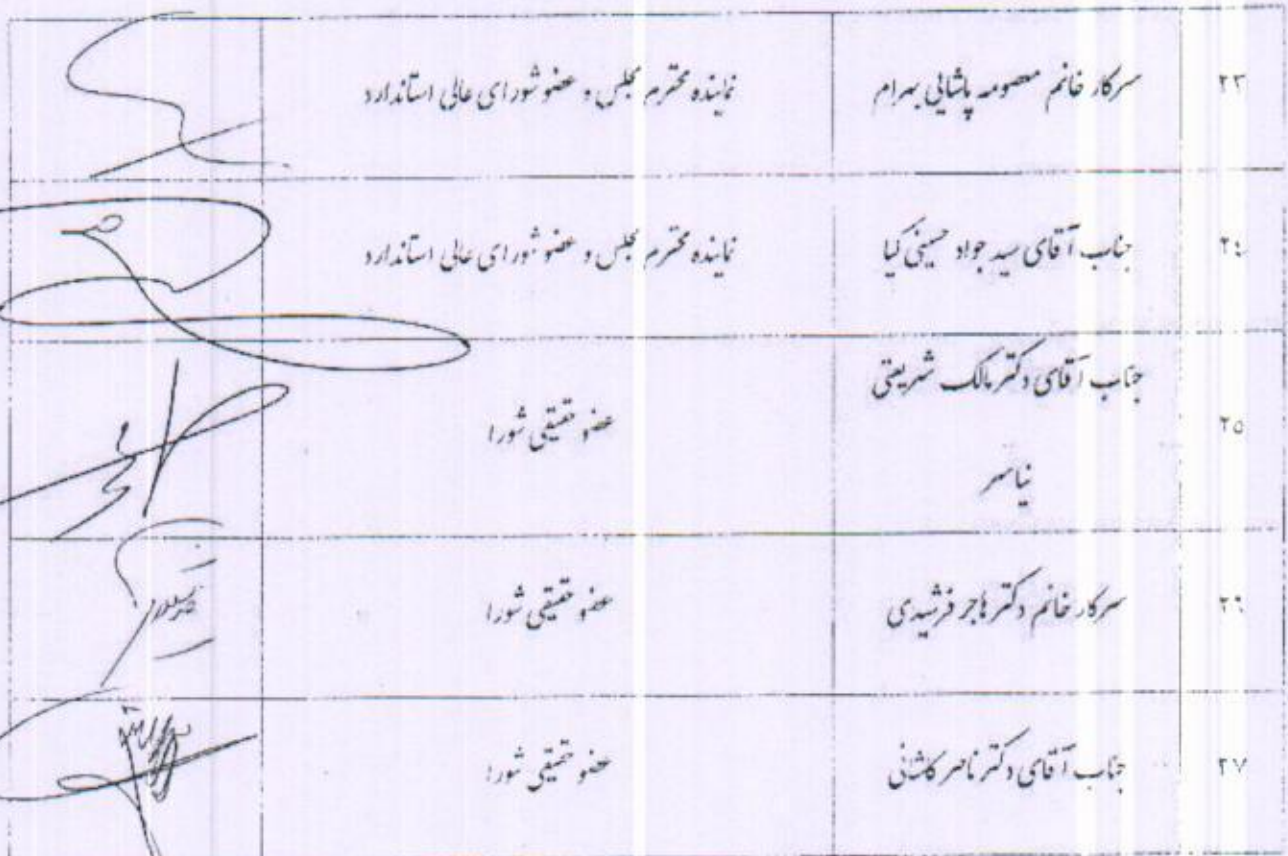 ۲۳ سرکار خانم معصومه پاشایی بهرام نماینده محترم مجلس و عضو شورای عالی استاندارد
۲۴ جناب آقای سید جواد حسینی کیا نماینده محترم مجلس و عضو شورای عالی استاندارد
جناب آقای دکتر مالک شریعتی
۲۵ عضو حقیقی شورا
نیاسر
۲۶ سرکار خانم دکتر هاجر فرشیدی عضو حقیقی شورا
۲۷ جناب آقای دکتر ناصر کاشانی عضو حقیقی شورا